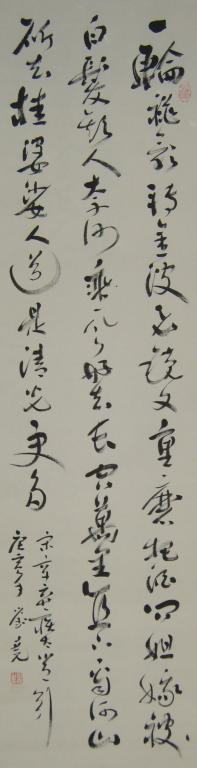 一輪秋影轉金波飛鏡又重磨把酒問姮娥被
白髮欺人奈何乘風好去長空萬里直下看河山
斫去桂婆娑人道是清光更多
宋辛棄疾太常引
庚寅